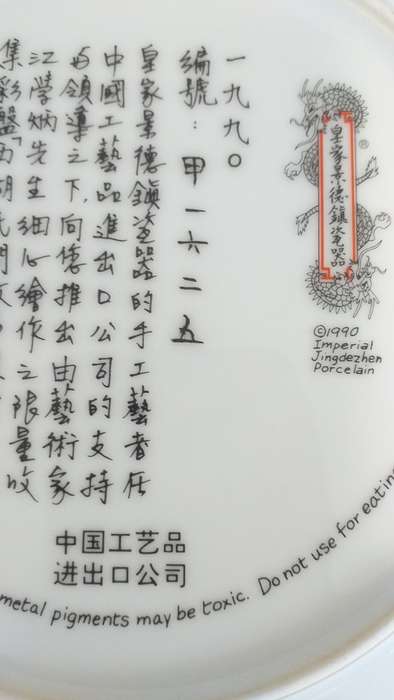 皇家景德鎮瓷器
®
©1990
Imperial
Jingdezhen
Porcelain
一九九〇
編號：甲一六二五
皇家景德鎮瓷器的手工藝者任
中國工藝品進出口公司的支持
与領導之下,向您推出由藝術家
江學炳先生細心繪作之限量收
集彩盤「西湖民間
中国工艺品
进出口公司
metal pigments may be toxic. Do not use for eating